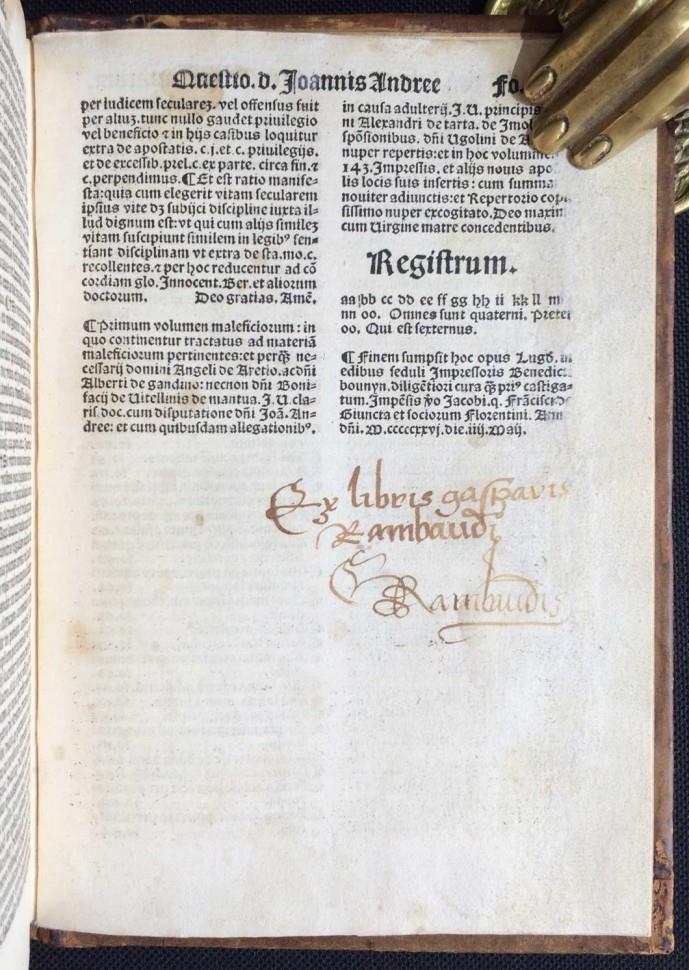 Questio.d.Joannis Andree Fo.
per iudicem seculareꝫ. vel offensus fuit
per aliuꝫ.tunc nullo gaudet priuilegio
vel beneficio ⁊ in hijs casibus loquitur
extra de apostatis.c.j.et.c.priuilegijs.
et de excessib.prel.c.ex parte. circa fin.⁊
c.perpendimus.¶Et est ratio manife-
sta:quia cum elegerit vitam secularem
ipsius vite dꝫ subijci discipline iuxta il-
lud dignum est:vt qui cum alijs simileꝫ
vitam suscipiunt similem in legibꝰ sen-
tiant disciplinam vt extra de sta.mo.c.
recollentes.⁊ per hoc reducentur ad cõ
cordiam glo.Innocent.Ber.et aliorum
doctorum. Deo gratias. Amẽ.
¶Primum volumen maleficiorum: in
quo continentur tractatus ad materiã
maleficiorum pertinentes:et perꝙ̃ ne-
cessarij domini Angeli de Aretio.ac dñi
Alberti de gandino: necnon dñi Boni-
facij de Vitellinis de mantua.J.U.cla-
ris.doc.cum disputatione dñi Joã.An-
dree: et cum quibusdam allegationibꝰ.
in causa adulterij.J.U. principis
ni Alexandri de tarta. de Imol
spõsionibus. dñi Ugolini de
nuper repertis:et in hoc volumine.
143.Impressis. et alijs nouis apo
lis locis suis insertis: cum summa
nouiter adiunctis:et Repertorio copi
sissimo nuper excogitato.Deo maxim
cum Uirgine matre concedentibus.
Registrum.
aa bb cc dd ee ff gg hh ii kk ll m
nn oo. Omnes sunt quaterni. Preter
oo. Qui est sexternus.
¶ Finem sumpsit hoc opus Lugd. in
edibus seduli Impressoris Benedict.
bounyn.diligẽtiori cura ꝙ̃ priꝰ castiga-
tum.Impẽsis ꝟo Jacobi.q. Frãcisci de
Giuncta et sociorum Florentini. Ann
dñi.M.cccccxxvj.die.iiij.Maij.
Ex libris gasparis
Rambaudi
G Rambaudis